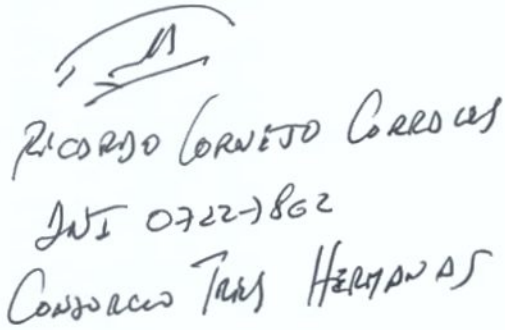 RICARDO CORNEJO CORRALES
DNI 07227862
CONSORCIO TRES HERMANAS